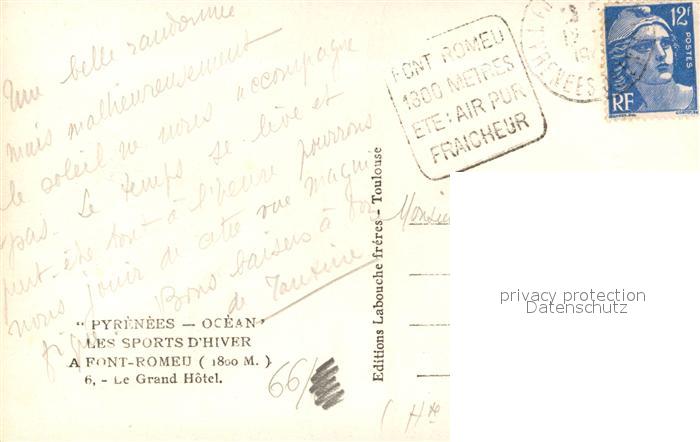 Une belle randonnée
mais malheureusement
le soleil ne nous accompagne
pas. Le temps se lève et
peut-être tout à l'heure pourrons
nous jouir de cette vue magni
fique. Bons baisers à
de
" PYRÉNÉES — OCÉAN "
LES SPORTS D'HIVER
A FONT-ROMEU ( 1800 M. )
6. - Le Grand Hôtel.
66/
Editions Labouche frères - Toulouse
FONT ROMEU
1800 METRES
ETE: AIR PUR
FRAICHEUR
PYRENEES
12F
POSTES
RF
Monsieu
( Hte
privacy protection
Datenschutz